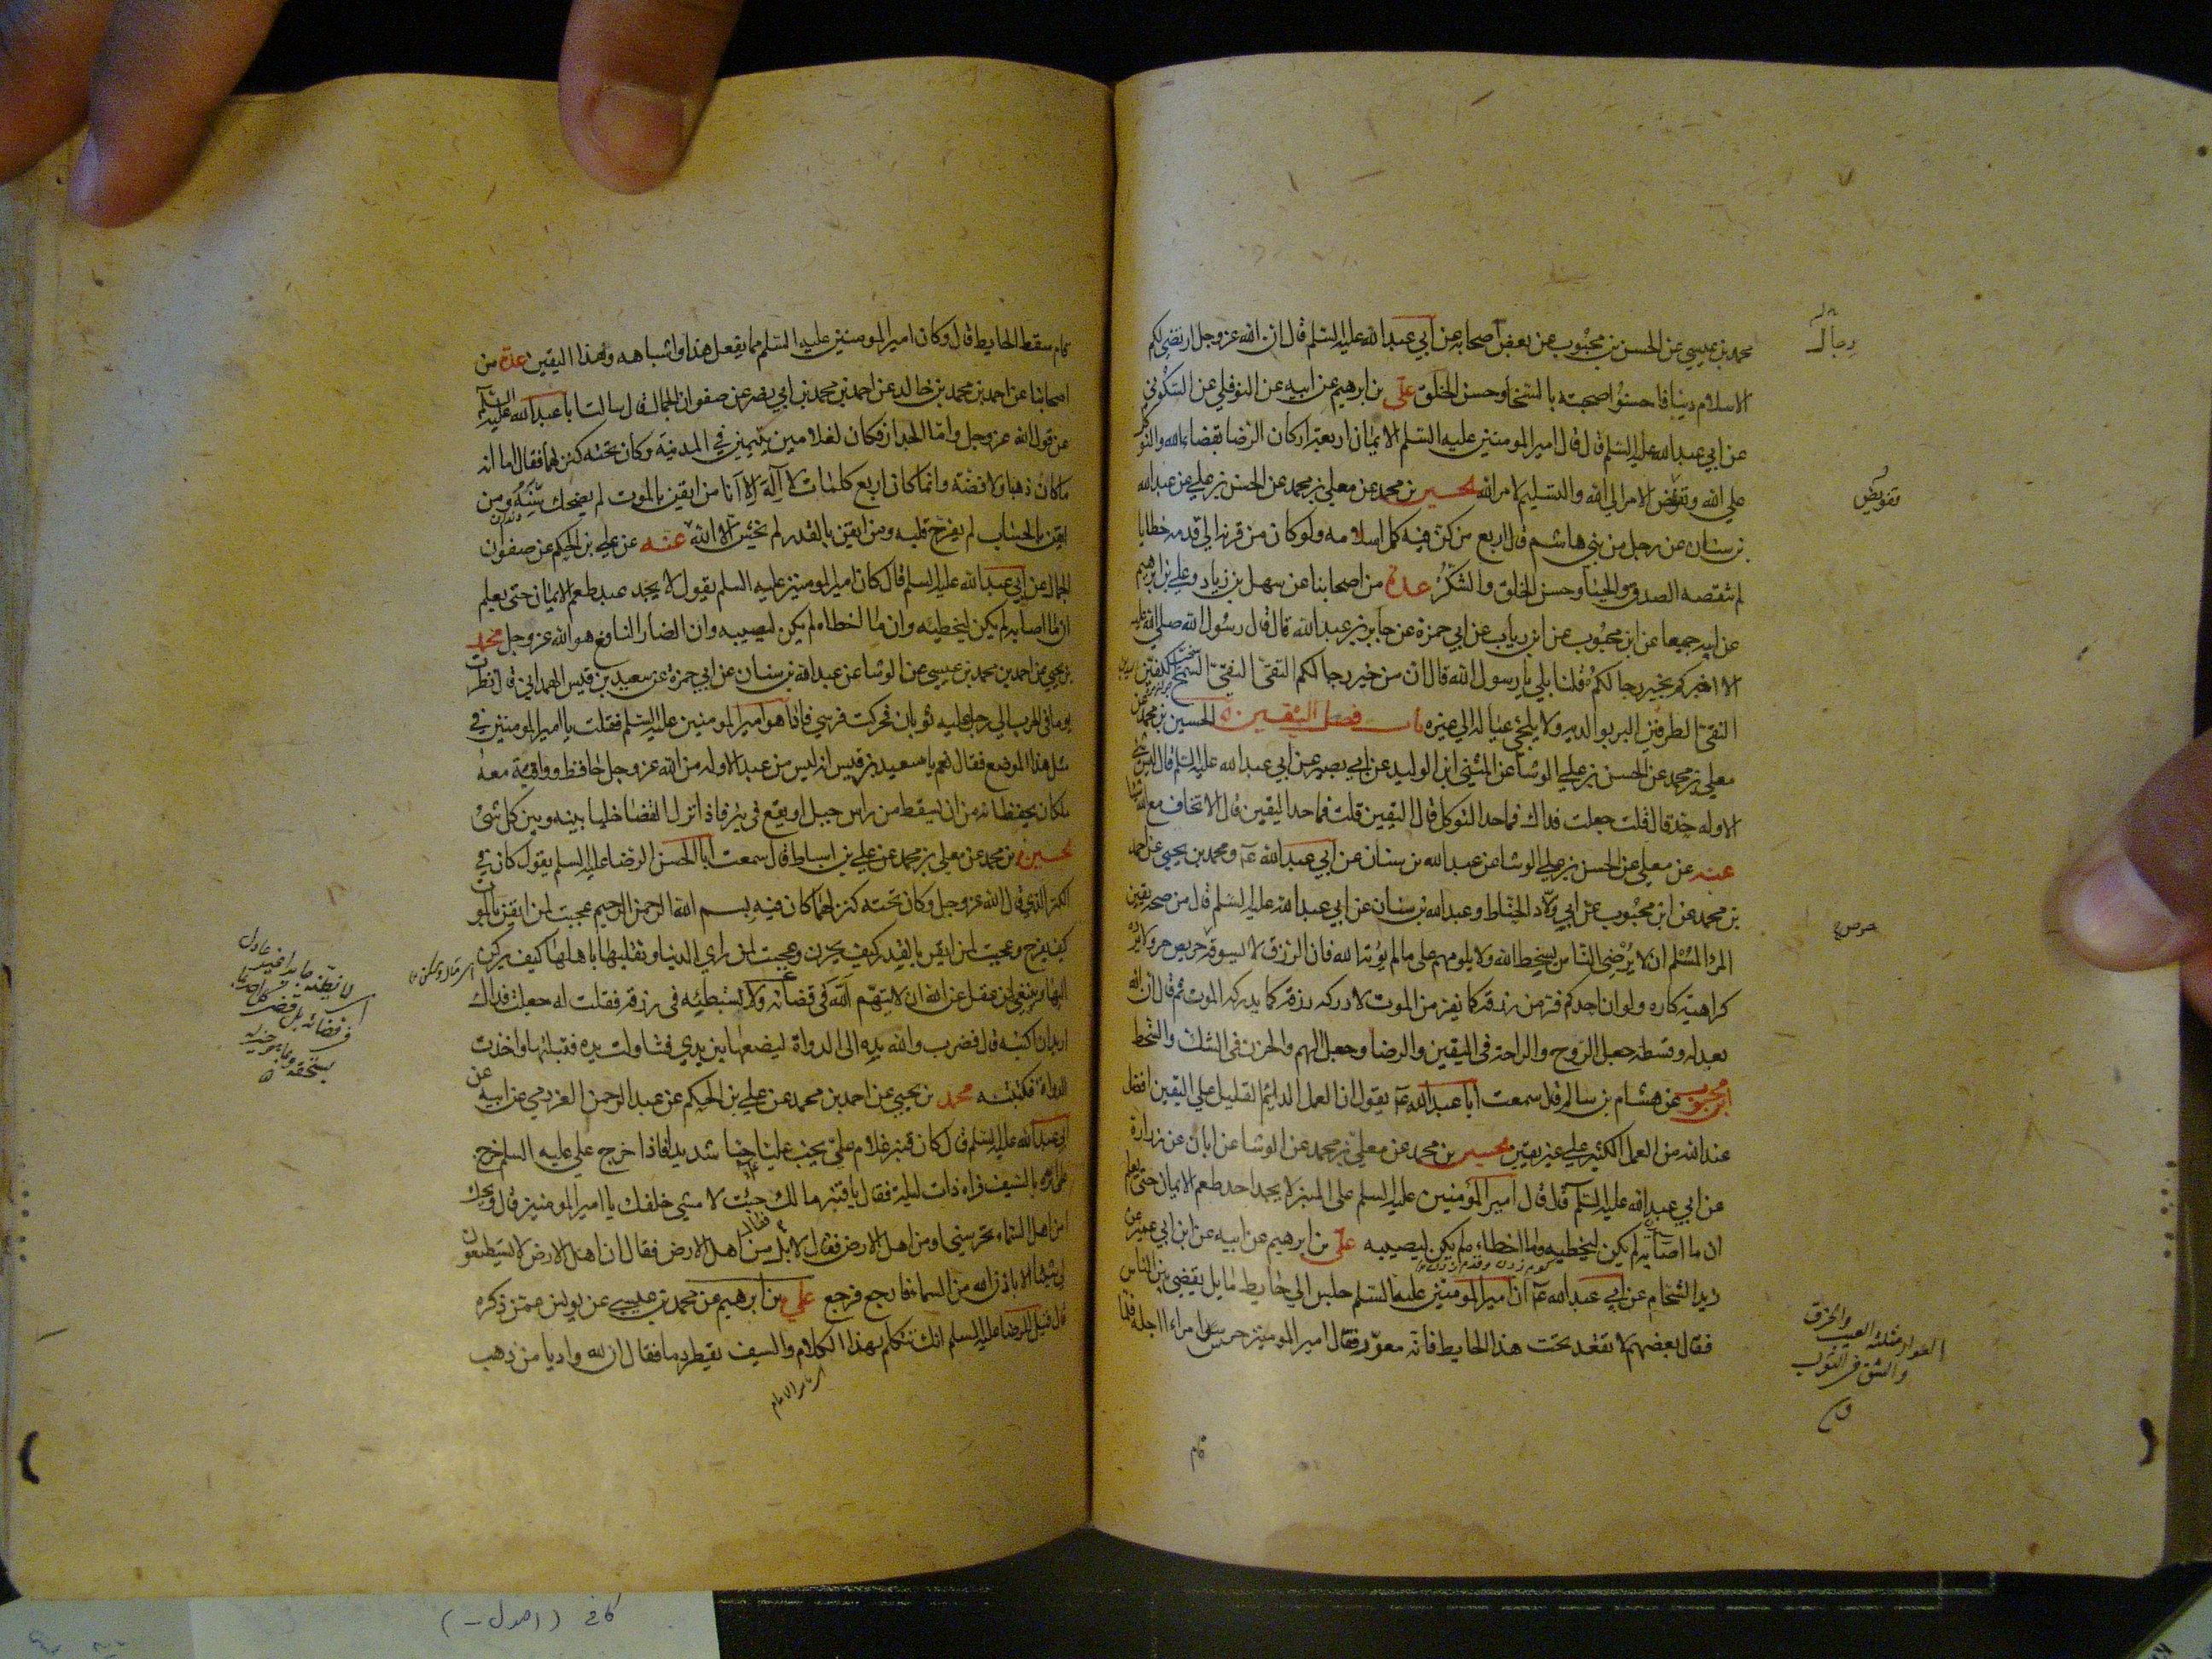 محمد بن عيسي عن الحسن بن محبوب عن بعض اصحابه عن ابي عبد الله عليه السلم قال ان الله عز وجل ارتضي لكم
الاسلام دينا فاحسنوا صحبته بالسخا وحسن الخلق علي بن ابرهيم عن ابيه عن النوفلي عن السكوني
عن ابي عبد الله عليه السلم قال قال امير المومنين عليه السلم الايمان اربعة اركان الرضا بقضاء الله والتوكل
علي الله وتفويض الامر الي الله والتسليم لامر الله الحسين بن محمد عن معلي بن محمد عن الحسن بن علي عن عبد الله
بن سنان عن رجل من بني هاشم قال اربع من كن فيه كمل اسلامه ولو كان من قرنه الي قدمه خطايا
لم تنقصه الصدق والحيا وحسن الخلق والشكر عدة من اصحابنا عن سهل بن زياد وعلي بن ابرهيم
عن ابيه جميعا عن ابن محبوب عن ابن رياب عن ابي حمزة عن جابر بن عبد الله قال قال رسول الله صلي الله عليه
الا اخبركم بخير رجالكم قلنا بلي يا رسول الله قال ان من خير رجالكم التقي النقي السمح الكفين
النقي الطرفين البر بوالديه ولا يلجئ عياله الي غيره باب فضل اليقين الحسين بن محمد عن
معلي بن محمد عن الحسن بن علي الوشا عن المثني ابن الوليد عن ابي بصير عن ابي عبد الله عليه السلم قال ليس شئ
الا وله حد قال قلت جعلت فداك فما حد التوكل قال اليقين قلت فما حد اليقين قال الا تخاف مع الله شيئا
عنه عن معلي عن الحسن بن علي الوشا عن عبد الله بن سنان عن ابي عبد الله ع ومحمد بن يحيي عن احمد
بن محمد عن ابن محبوب عن ابي ولاد الحناط وعبد الله بن سنان عن ابي عبد الله عليه السلم قال من صحة يقين
المرء المسلم ان لا يرضي الناس بسخط الله ولا يلومهم علي ما لم يؤته الله فان الرزق لا يسوقه حرص حريص ولا يرده
كراهية كاره ولو ان احدكم فر من رزقه كما يفر من الموت لادركه رزقه كما يدركه الموت ثم قال ان الله
بعدله وقسطه جعل الروح والراحة في اليقين والرضا وجعل الهم والحزن في الشك والسخط
ابن محبوب عن هشام بن سالم قال سمعت ابا عبد الله ع يقول ان العمل الدائم القليل علي اليقين افضل
عند الله من العمل الكثير علي غير يقين الحسين بن محمد عن معلي بن محمد عن الوشا عن ابان عن زرارة
عن ابي عبد الله عليه السلم قال قال امير المومنين عليه السلم علي المنبر لا يجد احد طعم الايمان حتي يعلم
ان ما اصابه لم يكن ليخطيه وما اخطاه لم يكن ليصيبه علي بن ابرهيم عن ابيه عن ابن ابي عمير عن
زيد الشحام عن ابي عبد الله ع ان امير المومنين عليه السلم جلس الي حايط مايل يقضي بين الناس
فقال بعضهم لا تقعد تحت هذا الحايط فانه معور فقال امير المومنين حرس امراء اجله فلما
قام
رجال
تفويض
حرص
العوار مثلثة العيب والخرق
والشق في الثوب
ق
قام سقط الحايط قال وكان امير المومنين عليه السلم مما يفعل هذا واشباهه وهذا اليقين عدة من
اصحابنا عن احمد بن محمد بن خالد عن احمد بن محمد بن ابي نصر عن صفوان الجمال قال سالت ابا عبد الله عليه السلم
عن قول الله عز وجل واما الجدار فكان لغلامين يتيمين في المدينة وكان تحته كنز لهما فقال اما انه
ما كان ذهبا ولا فضة وانما كان اربع كلمات لا آله الا انا من ايقن بالموت لم يضحك سنه ومن
ايقن بالحساب لم يفرح قلبه ومن ايقن بالقدر لم يخش الا الله عنه عن علي بن الحكم عن صفوان
الجمال عن ابي عبد الله عليه السلم قال كان امير المومنين عليه السلم يقول لا يجد عبد طعم الايمان حتي يعلم
ان ما اصابه لم يكن ليخطيه وان ما اخطاه لم يكن ليصيبه وان الضار النافع هو الله عز وجل محمد
بن يحيي عن احمد بن محمد بن عيسي عن الوشا عن عبد الله بن سنان عن ابي حمزة عن سعيد بن قيس الهمداني قال نظرت
يوما في الحرب الي رجل عليه ثوبان فحركت فرسي فاذا هو امير المومنين عليه السلم فقلت يا امير المومنين في
مثل هذا الموضع فقال نعم يا سعيد بن قيس انه ليس من عبد الا وله من الله عز وجل حافظ وواقية معه
ملكان يحفظانه من ان يسقط من راس جبل او يقع في بئر فاذا نزل القضا خليا بينه وبين كل شئ
الحسين بن محمد عن معلي بن محمد عن علي بن اسباط قال سمعت ابا الحسن الرضا عليه السلم يقول كان في
الكنز الذي قال الله عز وجل وكان تحته كنز لهما كان فيه بسم الله الرحمن الرحيم عجبت لمن ايقن بالموت
كيف يفرح وعجبت لمن ايقن بالقدر كيف يحزن وعجبت لمن راي الدنيا وتقلبها باهلها كيف يركن
اليها وينبغي لمن عقل عن الله ان لا يتهم الله في قضائه ولا يستبطئه في رزقه فقلت له جعلت فداك
اريد ان اكتبه قال فضرب والله يده الي الدواة ليضعها بين يدي فتناولت يده فقبلتها واخذت
الدواة فكتبته محمد بن يحيي عن احمد بن محمد عن علي بن الحكم عن عبد الرحمن العزرمي عن ابيه عن
ابي عبد الله عليه السلم قال كان قنبر غلام علي يحب عليا حبا شديدا فاذا خرج علي عليه السلم خرج
علي اثره بالسيف فراه ذات ليلة فقال يا قنبر ما لك جئت لامشي خلفك يا امير المومنين قال ويحك
امن اهل السماء تحرسني او من اهل الارض فقال لا بل من اهل الارض فقال ان اهل الارض لا يستطيعون
لي شيئا الا باذن الله من السماء فارجع فرجع علي بن ابرهيم عن محمد بن عيسي عن يونس عمن ذكره
قال قيل للرضا عليه السلم انك تتكلم بهذا الكلام والسيف يقطر دما فقال ان لله واديا من ذهب
كافي (اصول -)